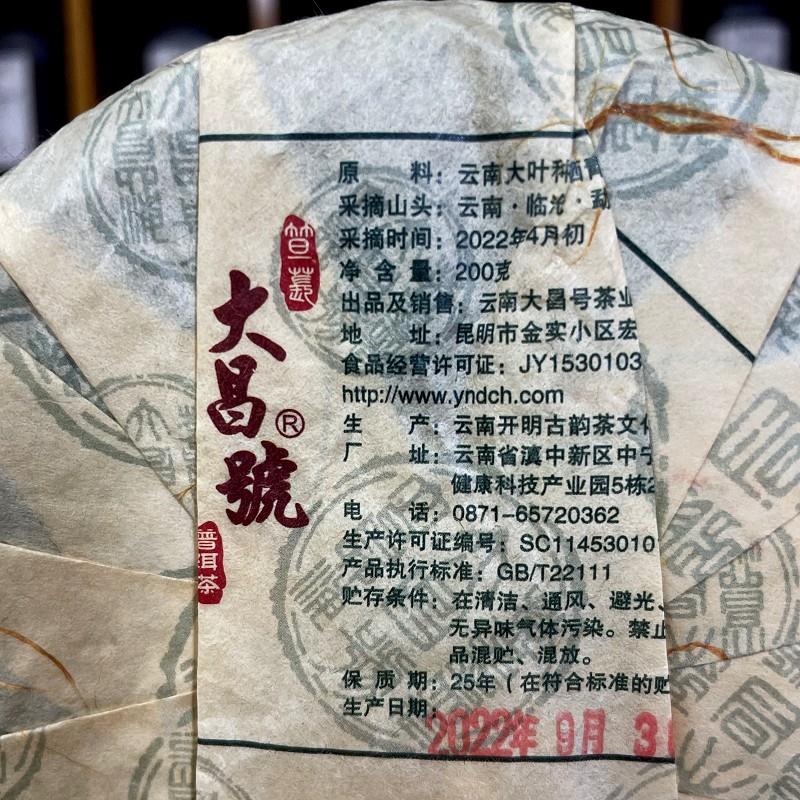 原料：云南大叶种晒青
采摘山头：云南·临沧·勐
采摘时间：2022年4月初
净含量：200克
出品及销售：云南大昌号茶业
地址：昆明市金实小区宏
食品经营许可证：JY1530103
http://www.yndch.com
生产：云南开明古韵茶文化
厂址：云南省滇中新区中宁
健康科技产业园5栋2
电话：0871-65720362
生产许可证编号：SC11453010
产品执行标准：GB/T22111
贮存条件：在清洁、通风、避光、
无异味气体污染。禁止
品混贮、混放。
保质期：25年（在符合标准的贮
生产日期：
2022年 9月 3
大昌號®
普洱茶